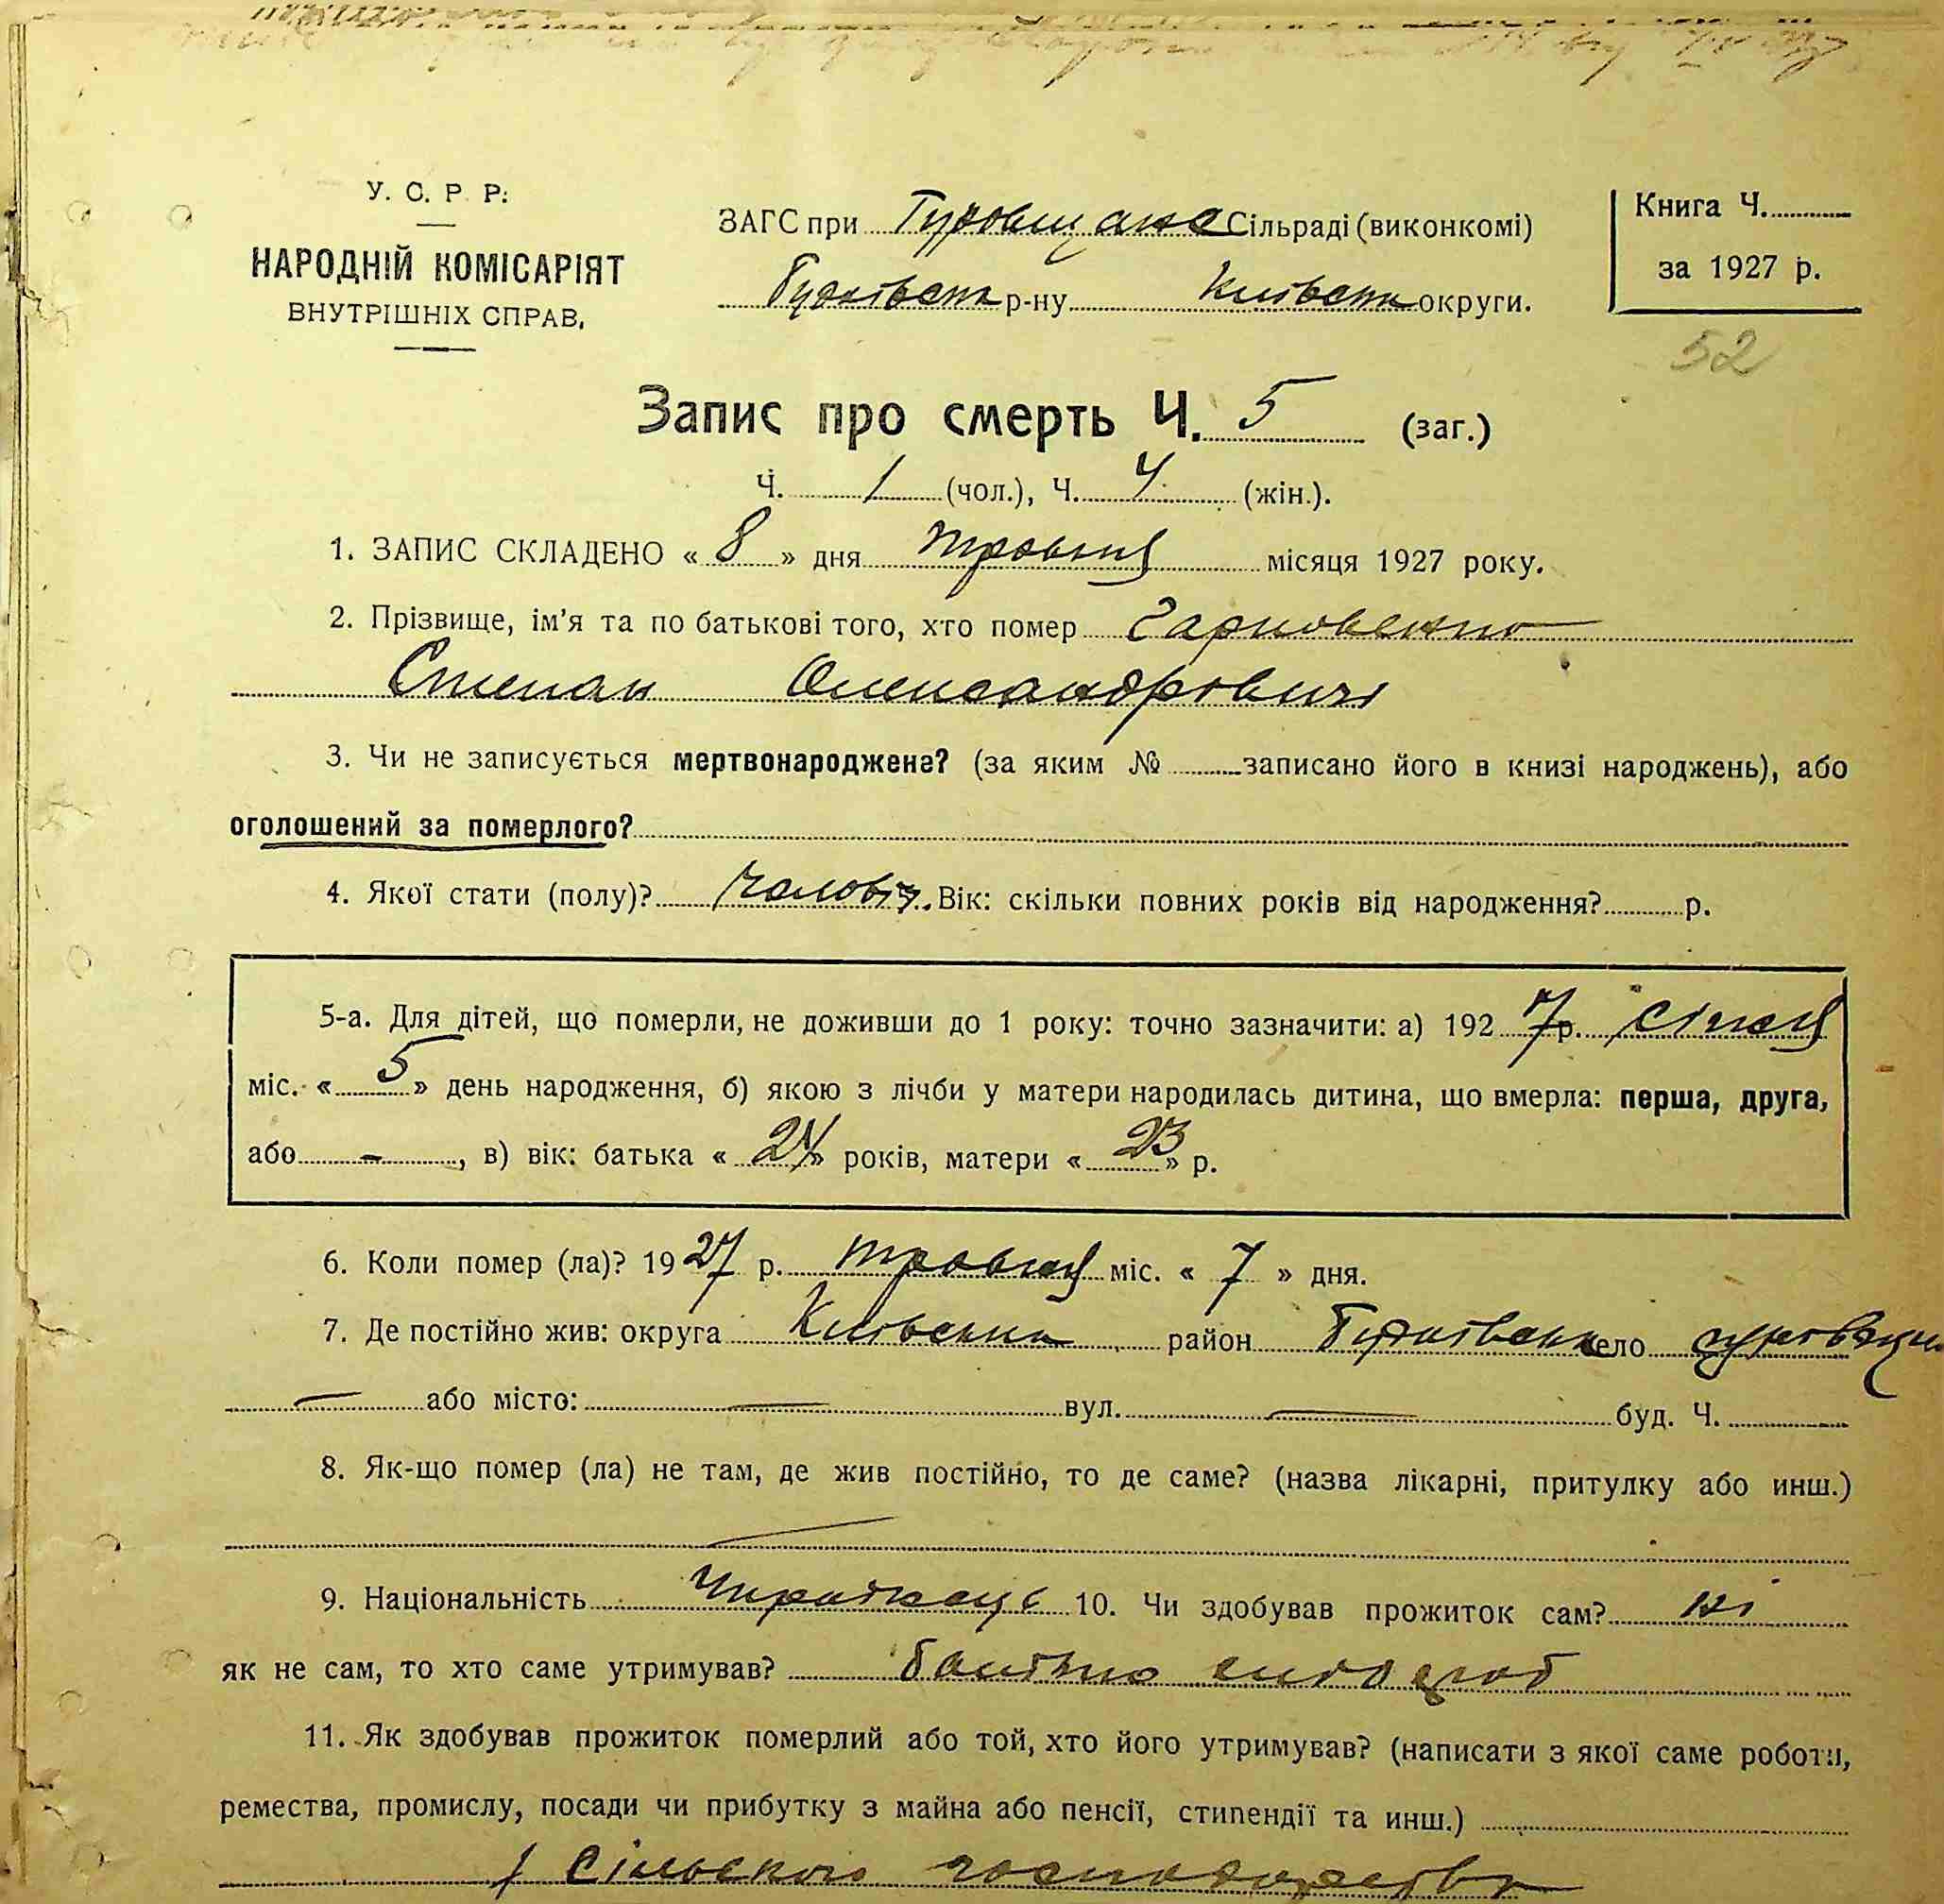 У. С. Р. Р.
НАРОДНІЙ КОМІСАРІЯТ
ВНУТРІШНІХ СПРАВ.
ЗАГС при Гуровщанс Сільраді (виконкомі)
Будаївськ р-ну Київськ округи.
Книга Ч.
за 1927 р.
52
Запис про смерть Ч. 5 (заг.)
Ч. 1 (чол.), Ч. 4 (жін.).
1. ЗАПИС СКЛАДЕНО « 8 » дня травня місяця 1927 року.
2. Прізвище, ім'я та по батькові того, хто помер
Степан Олександрович
3. Чи не записується мертвонароджене? (за яким № записано його в книзі народжень), або
оголошений за померлого?
4. Якої стати (полу)? Чоловіч. Вік: скільки повних років від народження? р.
5-а. Для дітей, що померли, не доживши до 1 року: точно зазначити: а) 192 7 р. січня
міс. « 5 » день народження, б) якою з лічби у матери народилась дитина, що вмерла: перша, друга,
або - , в) вік: батька « 24 » років, матери « 23 » р.
6. Коли помер (ла)? 1927 р. травня міс. « 7 » дня.
7. Де постійно жив: округа Київська район Будаївськ село
— або місто: — вул. — буд. Ч.
8. Як-що помер (ла) не там, де жив постійно, то де саме? (назва лікарні, притулку або инш.)
9. Національність 10. Чи здобував прожиток сам? ні
як не сам, то хто саме утримував? батько
11. Як здобував прожиток померлий або той, хто його утримував? (написати з якої саме роботи,
ремества, промислу, посади чи прибутку з майна або пенсії, стипендії та инш.)
з Сільського господарства